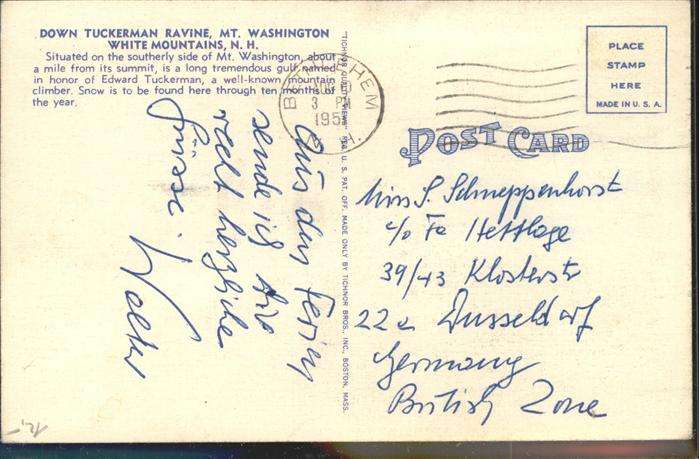 DOWN TUCKERMAN RAVINE, MT. WASHINGTON
WHITE MOUNTAINS, N. H.
Situated on the southerly side of Mt. Washington, about
a mile from its summit, is a long tremendous gulf named
in honor of Edward Tuckerman, a well-known mountain
climber. Snow is to be found here through ten months of
the year.
Aus den Ferien
sende ich Ihnen
recht herzliche
Grüsse.
Walter
"TICHNOR QUALITY VIEWS" REG. U. S. PAT. OFF. MADE ONLY BY TICHNOR BROS., INC., BOSTON, MASS.
BETHLEHEM
3 PM
195
N. H.
PLACE
STAMP
HERE
MADE IN U. S. A.
POST CARD
Miss S. Schneppenhorst
c/o Fa Hettlage
39/43 Klosterstr
22a Dusseldorf
Germany
British Zone